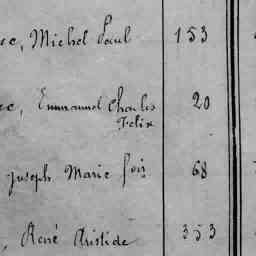 ec, Michel Paul 153
ec, Emmanuel Charles 20
Felix
Joseph Marie 68
, René Aristide 353